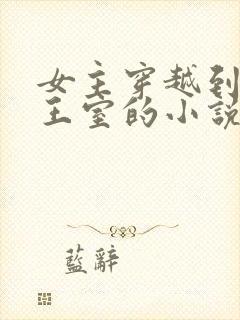 女主穿越到
王室的小說
藍辭